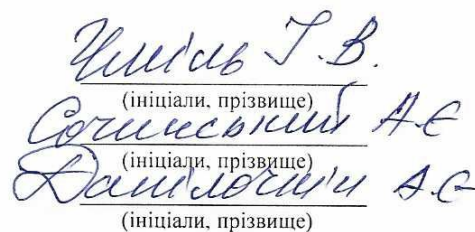 Чміль Т. В.
(ініціали, прізвище)
Сочинський А.Є
(ініціали, прізвище)
Данілочкін А.Є
(ініціали, прізвище)